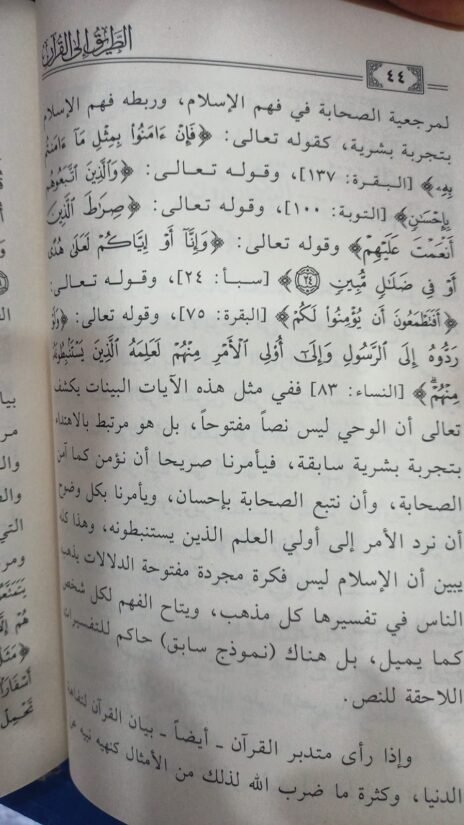 الطريق إلى القرآن
٤٤
لمرجعية الصحابة في فهم الإسلام، وربطه فهم الإسلام
بتجربة بشرية، كقوله تعالى: ﴿فَإِنْ ءَامَنُوا بِمِثْلِ مَآ ءَامَنتُم
بِهِۦ﴾ [البـقـرة: ١٣٧]، وقـولـه تـعـالـى: ﴿وَالَّذِينَ اتَّبَعُوهُم
بِإِحْسَٰنٍ﴾ [التوبة: ١٠٠]، وقوله تعالى: ﴿صِرَٰطَ الَّذِينَ
أَنْعَمْتَ عَلَيْهِمْ﴾ وقوله تعالى: ﴿وَإِنَّآ أَوْ إِيَّاكُمْ لَعَلَىٰ هُدًى
أَوْ فِي ضَلَٰلٍ مُّبِينٍ ٢٤﴾ [سـبـأ: ٢٤]، وقـولـه تـعـالـى:
﴿أَفَتَطْمَعُونَ أَن يُؤْمِنُوا لَكُمْ﴾ [البقرة: ٧٥]، وقوله تعالى: ﴿وَلَوْ
رَدُّوهُ إِلَى الرَّسُولِ وَإِلَىٰٓ أُوْلِي الْأَمْرِ مِنْهُمْ لَعَلِمَهُ الَّذِينَ يَسْتَنۢبِطُونَهُ
مِنْهُمْ﴾ [النساء: ٨٣] ففي مثل هذه الآيات البينات يكشف
تعالى أن الوحي ليس نصاً مفتوحاً، بل هو مرتبط بالاهتداء
بتجربة بشرية سابقة، فيأمرنا صريحا أن نؤمن كما آمن
الصحابة، وأن نتبع الصحابة بإحسان، ويأمرنا بكل وضوح
أن نرد الأمر إلى أولي العلم الذين يستنبطونه، وهذا كله
يبين أن الإسلام ليس فكرة مجردة مفتوحة الدلالات يذهب
الناس في تفسيرها كل مذهب، ويتاح الفهم لكل شخص
كما يميل، بل هناك (نموذج سابق) حاكم للتفسيرات
اللاحقة للنص.
وإذا رأى متدبر القرآن ـ أيضاً ـ بيان القرآن
الدنيا، وكثرة ما ضرب الله لذلك من الأمثال كنهيه نبيه